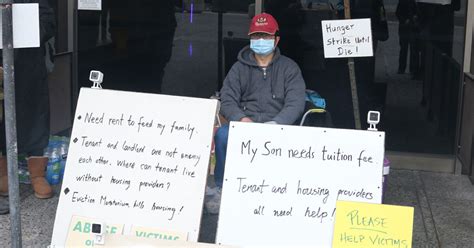 Hunger
Strike Until
Die!
Need rent to feed my family.
Tenant and landlord are not enemy
each other. Where can tenant live
without housing providers?
Eviction Moratorium kills housing!
ABUSE
VICTIMS
My Son needs tuition fee
Tenant and housing providers
all need help!
PLEASE
HELP VICTIMS